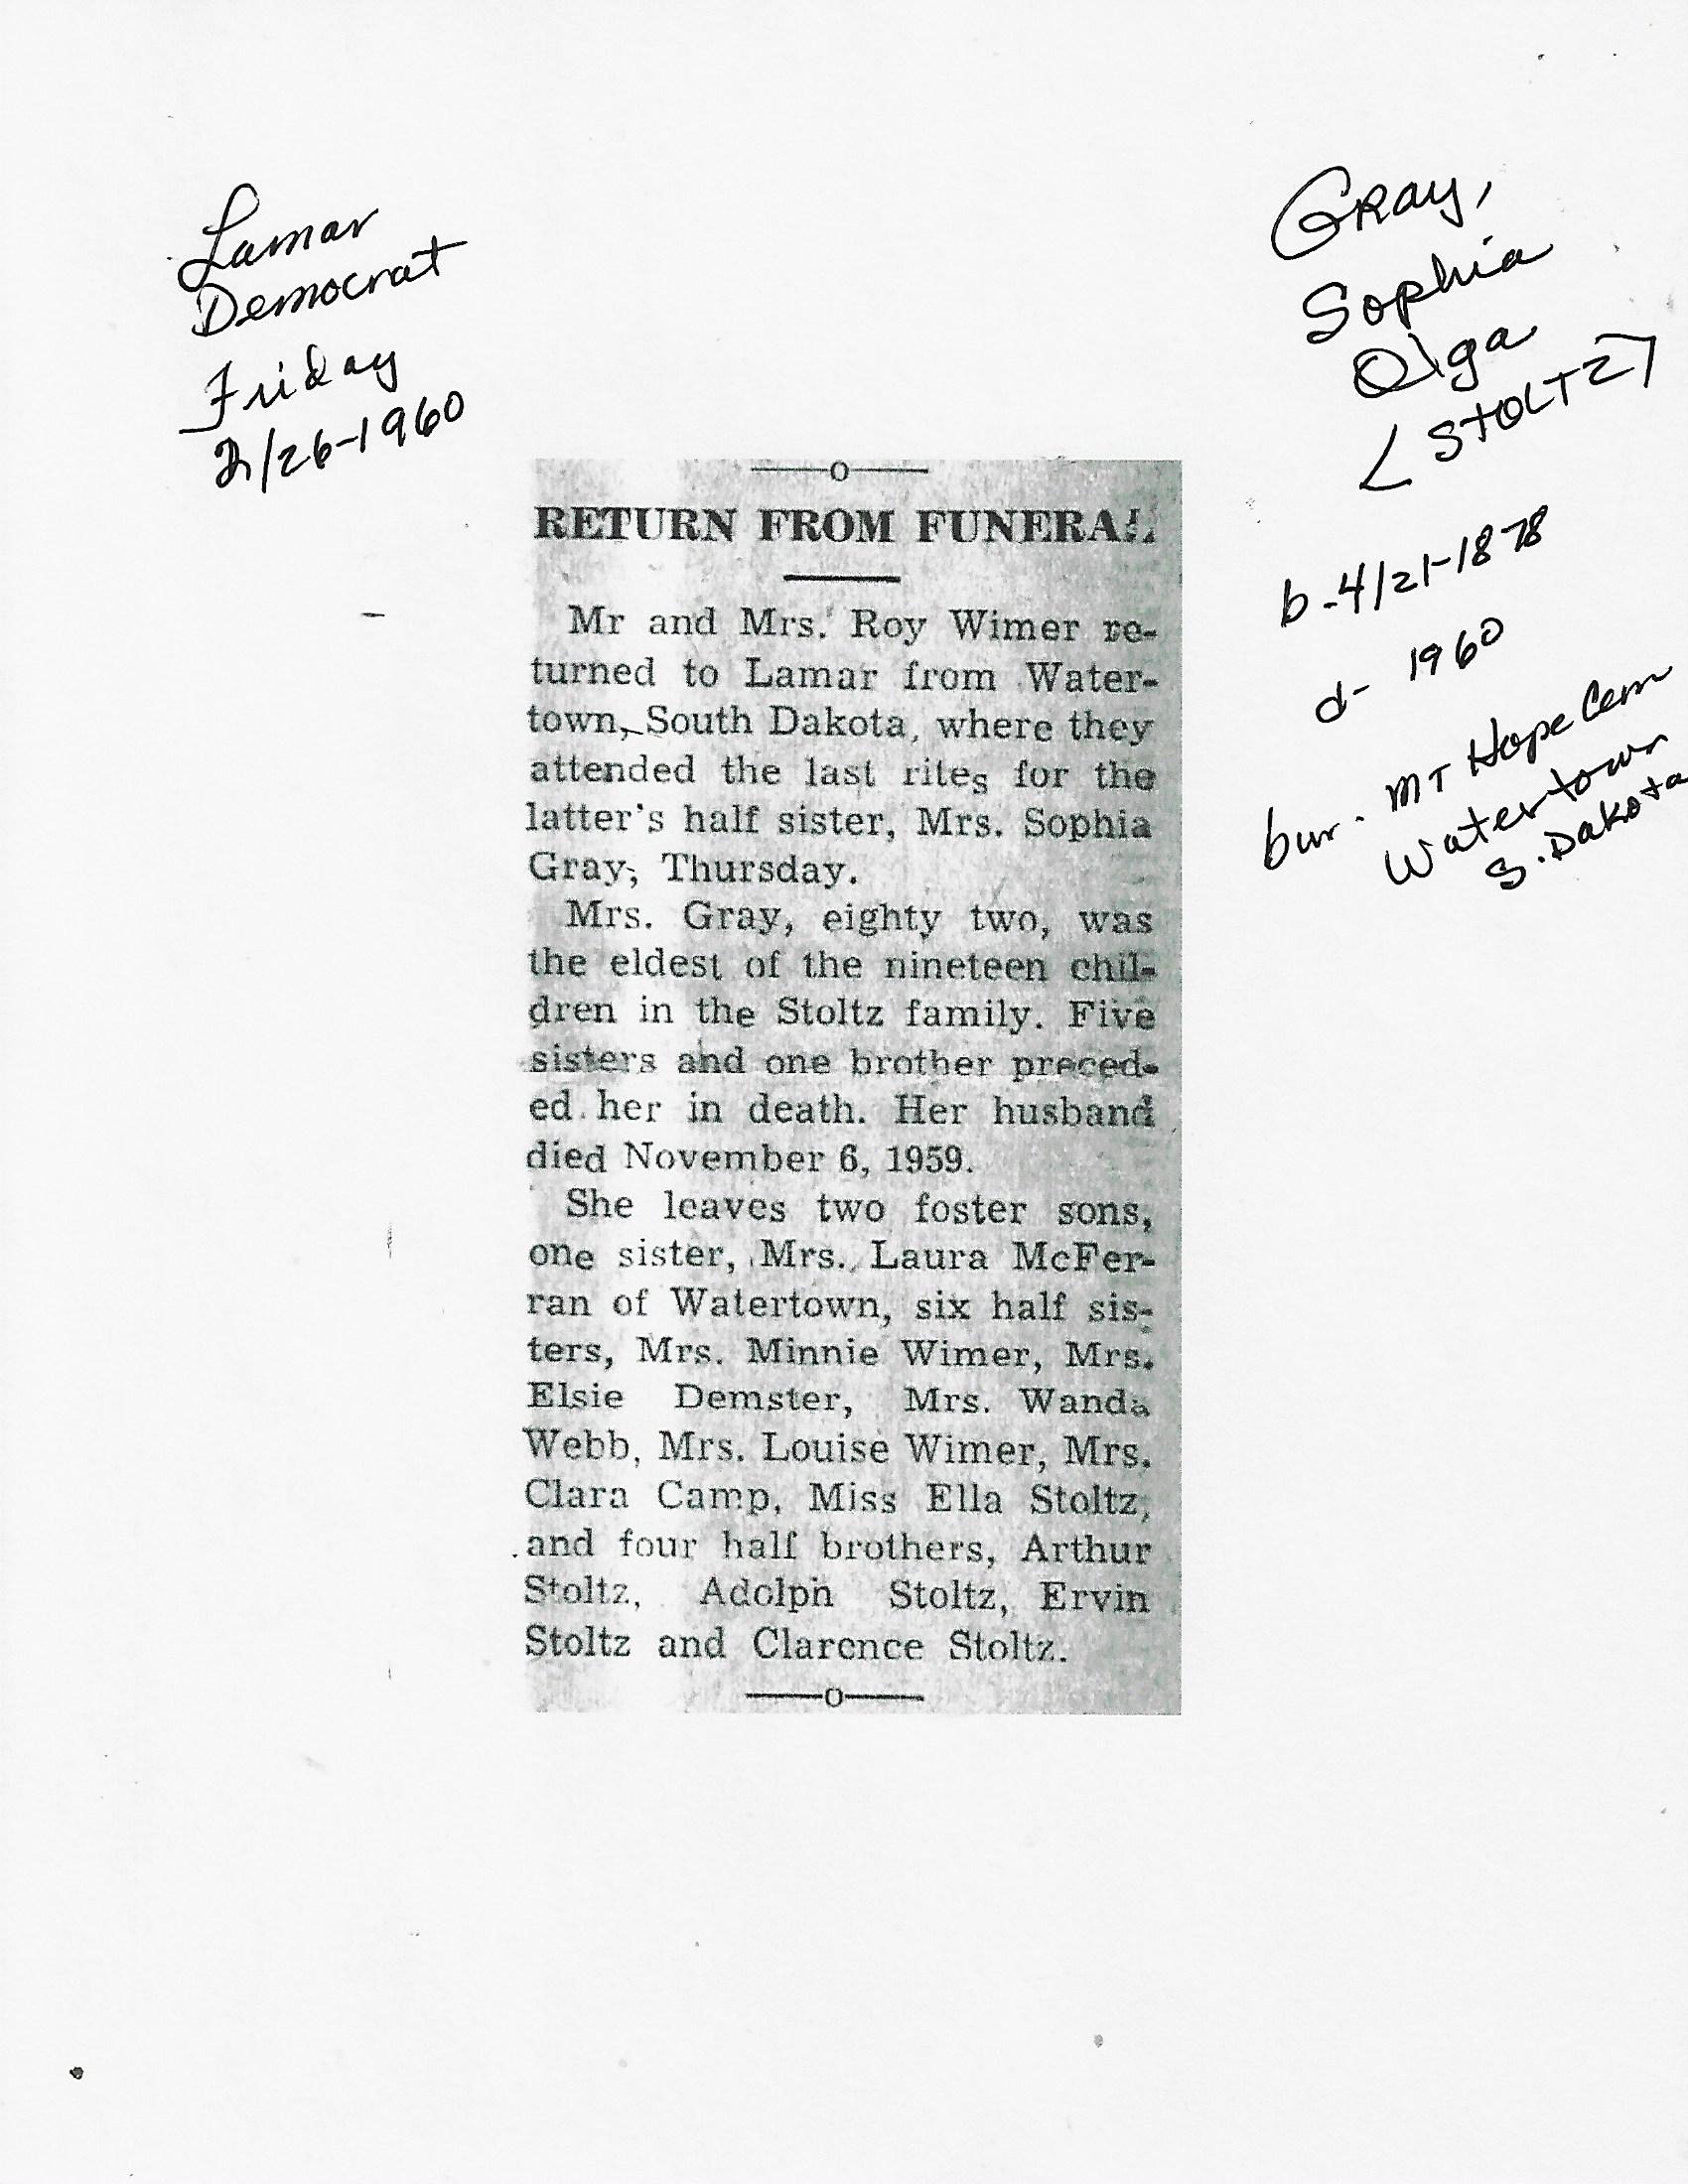 Lamar
Democrat
Friday
2/26-1960
Gray,
Sophia
Olga
<STOLTZ>
b-4/21-1878
d- 1960
bur. MT Hope Cem
Watertown
S. Dakota
——o——
RETURN FROM FUNERAL
Mr and Mrs. Roy Wimer re-
turned to Lamar from Water-
town, South Dakota, where they
attended the last rites for the
latter's half sister, Mrs. Sophia
Gray, Thursday.
Mrs. Gray, eighty two, was
the eldest of the nineteen chil-
dren in the Stoltz family. Five
sisters and one brother preced-
ed her in death. Her husband
died November 6, 1959.
She leaves two foster sons,
one sister, Mrs. Laura McFer-
ran of Watertown, six half sis-
ters, Mrs. Minnie Wimer, Mrs.
Elsie Demster, Mrs. Wanda
Webb, Mrs. Louise Wimer, Mrs.
Clara Camp, Miss Ella Stoltz,
and four half brothers, Arthur
Stoltz, Adolph Stoltz, Ervin
Stoltz and Clarence Stoltz.
——o——